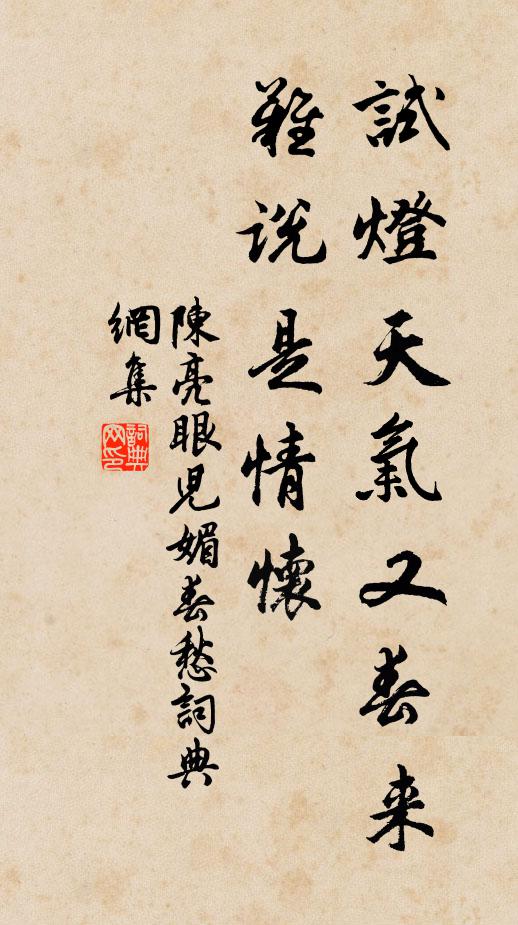 試燈天氣又春来
難説是情懷
陳亮眼児媚春愁詞典
網集
詞典網印